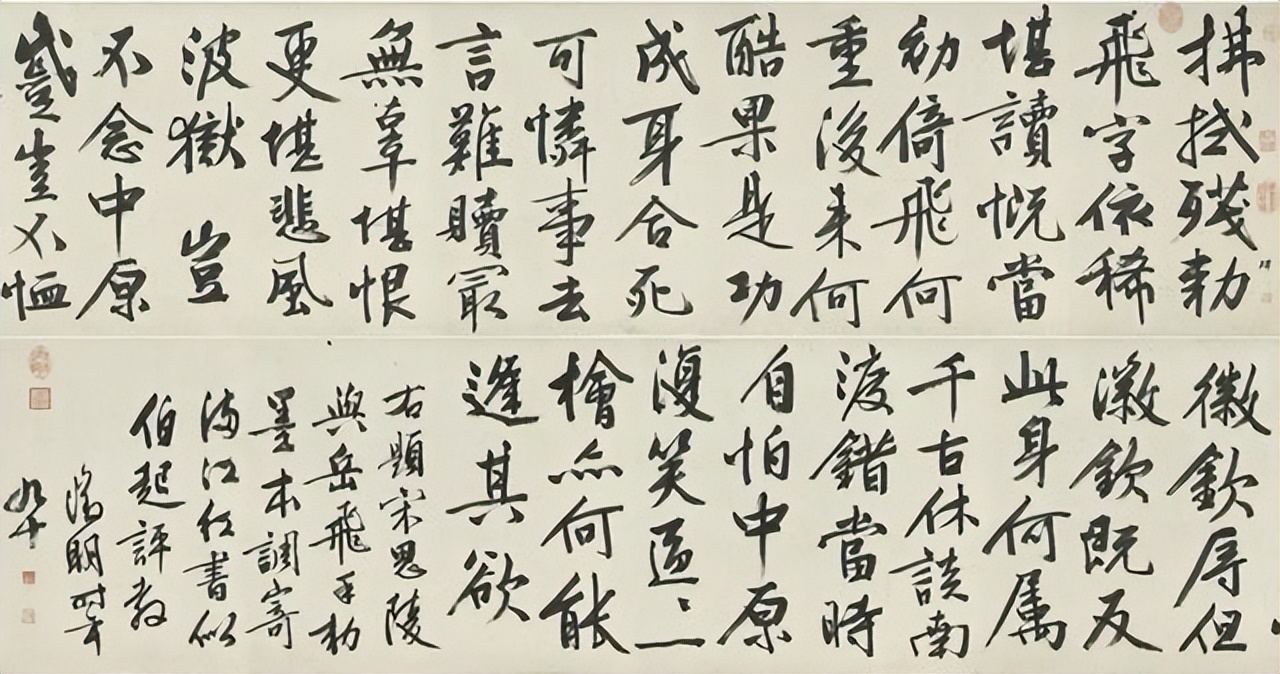 拂拭殘勅
飛字依稀
堪讀慨當
初倚飛何
重後来何
酷果是功
成身合死
可憐事去
言難贖冣
無辜堪恨
更堪悲風
波獄 豈
不念中原
蹙豈不恤
徽欽辱但
徽欽既反
此身何屬
千古休談南
渡錯當時
自怕中原
復笑區〻一
檜亦何能
逢其欲
右題宋思陵
與岳飛手勅
墨本調寄
滿江紅書似
伯起評教
徵明時年
九十